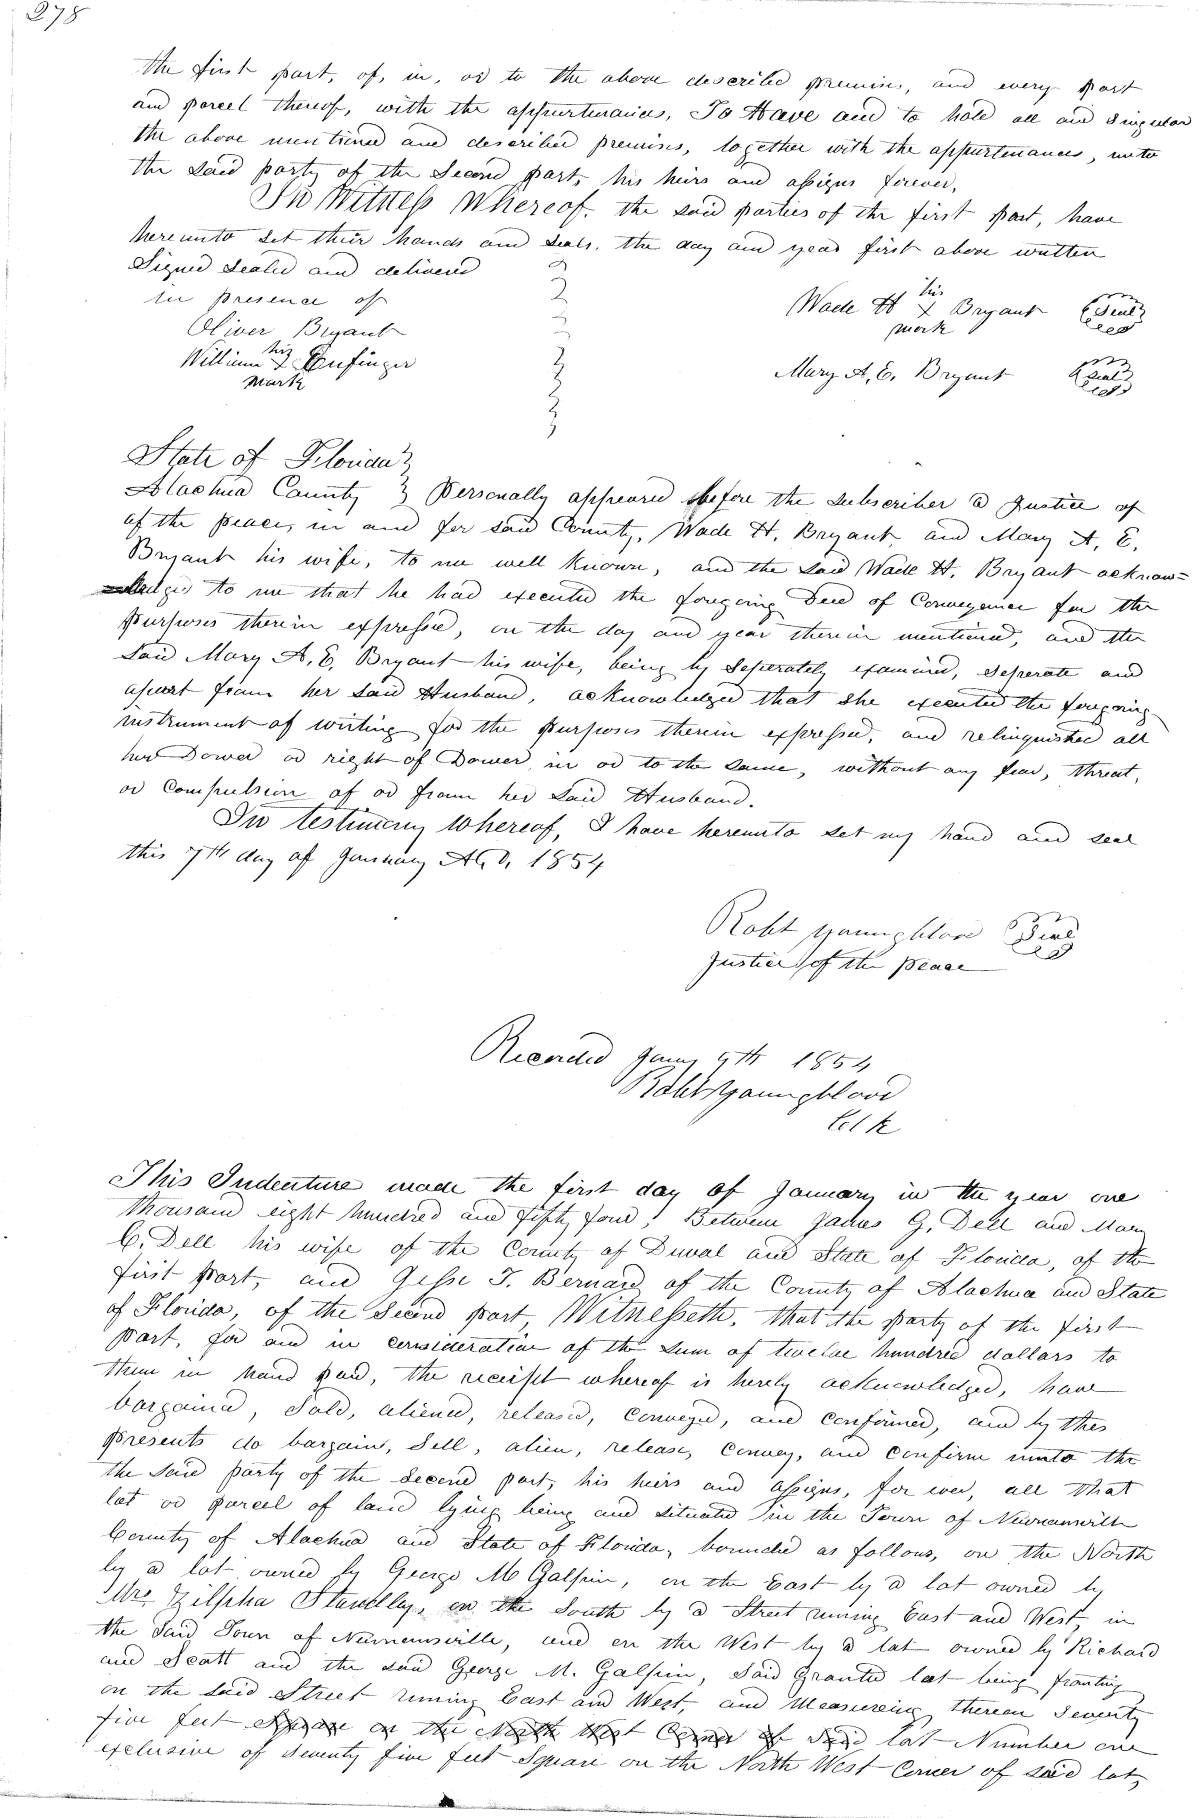 278
the first part, of, in, or to the above described premises, and every part
and parcel thereof, with the appurtenances, To Have and to hold all and singular
the above mentioned and described premises, together with the appurtenances, unto
the said party of the Second part, his heirs and assigns forever,
In Witness Whereof, the said parties of the first part, have
hereunto set their hands and seals, the day and year first above written
Signed sealed and delivered
in presence of
Oliver Bryant
William his X mark Enfinger
Wade H his X mark Bryant Seal
Mary A, E, Bryant Seal
State of Florida
Alachua County } Personally appeared before the subscriber a Justice of
of the peace, in and for said County, Wade H, Bryant, and Mary A, E,
Bryant his wife, to me well known, and the said Wade H. Bryant acknow=
ledges to me that he had executed the foregoing Deed of Conveyance for the
purposes therein expressed, on the day and year therein mentioned, and the
said Mary A, E, Bryant his wife, being by seperately examined, seperate and
apart from her said Husband, acknowledged that she executed the foregoing
instrument of writing for the purposes therein expressed, and relinquished all
her Dower or right of Dower, in or to the same, without any fear, threat,
or compulsion of or from her said Husband.
In testimony whereof, I have hereunto set my hand and seal
this 7th day of January A,D, 1854
Robt Youngblood Seal
Justice of the peace
Recorded Jany 9th 1854
Robt Youngblood
Clk
This Indenture made the first day of January in the year one
thousand eight hundred and fifty four, Between James G, Dell and Mary
C, Dell his wife of the County of Duval and State of Florida, of the
first part, and Jesse T. Bernard of the County of Alachua and State
of Florida, of the Second part, Witnesseth, that the party of the first
part, for and in consideration of the sum of twelve hundred dollars to
them in hand paid, the receipt whereof is hereby acknowledged, have
bargained, Sold, aliened, released, conveyed, and confirmed, and by thes
presents do bargain, Sell, alien, release, convey, and confirm unto the
the said party of the second part, his heirs and assigns, for ever, all that
lot or parcel of land lying being and situated in the Town of Newnansville
County of Alachua and State of Florida, bounded as follows, on the North
by a lot owned by George M Galphin, on the East by a lot owned by
Mrs, Zilpha Standley, on the South by a Street runing East and West, in
the said Town of Newnansville, and on the West by a lot owned by Richard
and Scott and the said George M. Galphin, Said granted lot being fronting
on the said Street runing East and West, and Measureing thereon Seventy
five feet square on the North West Corner of said lot Number one
exclusive of seventy five feet Square on the North West Corner of said lot,